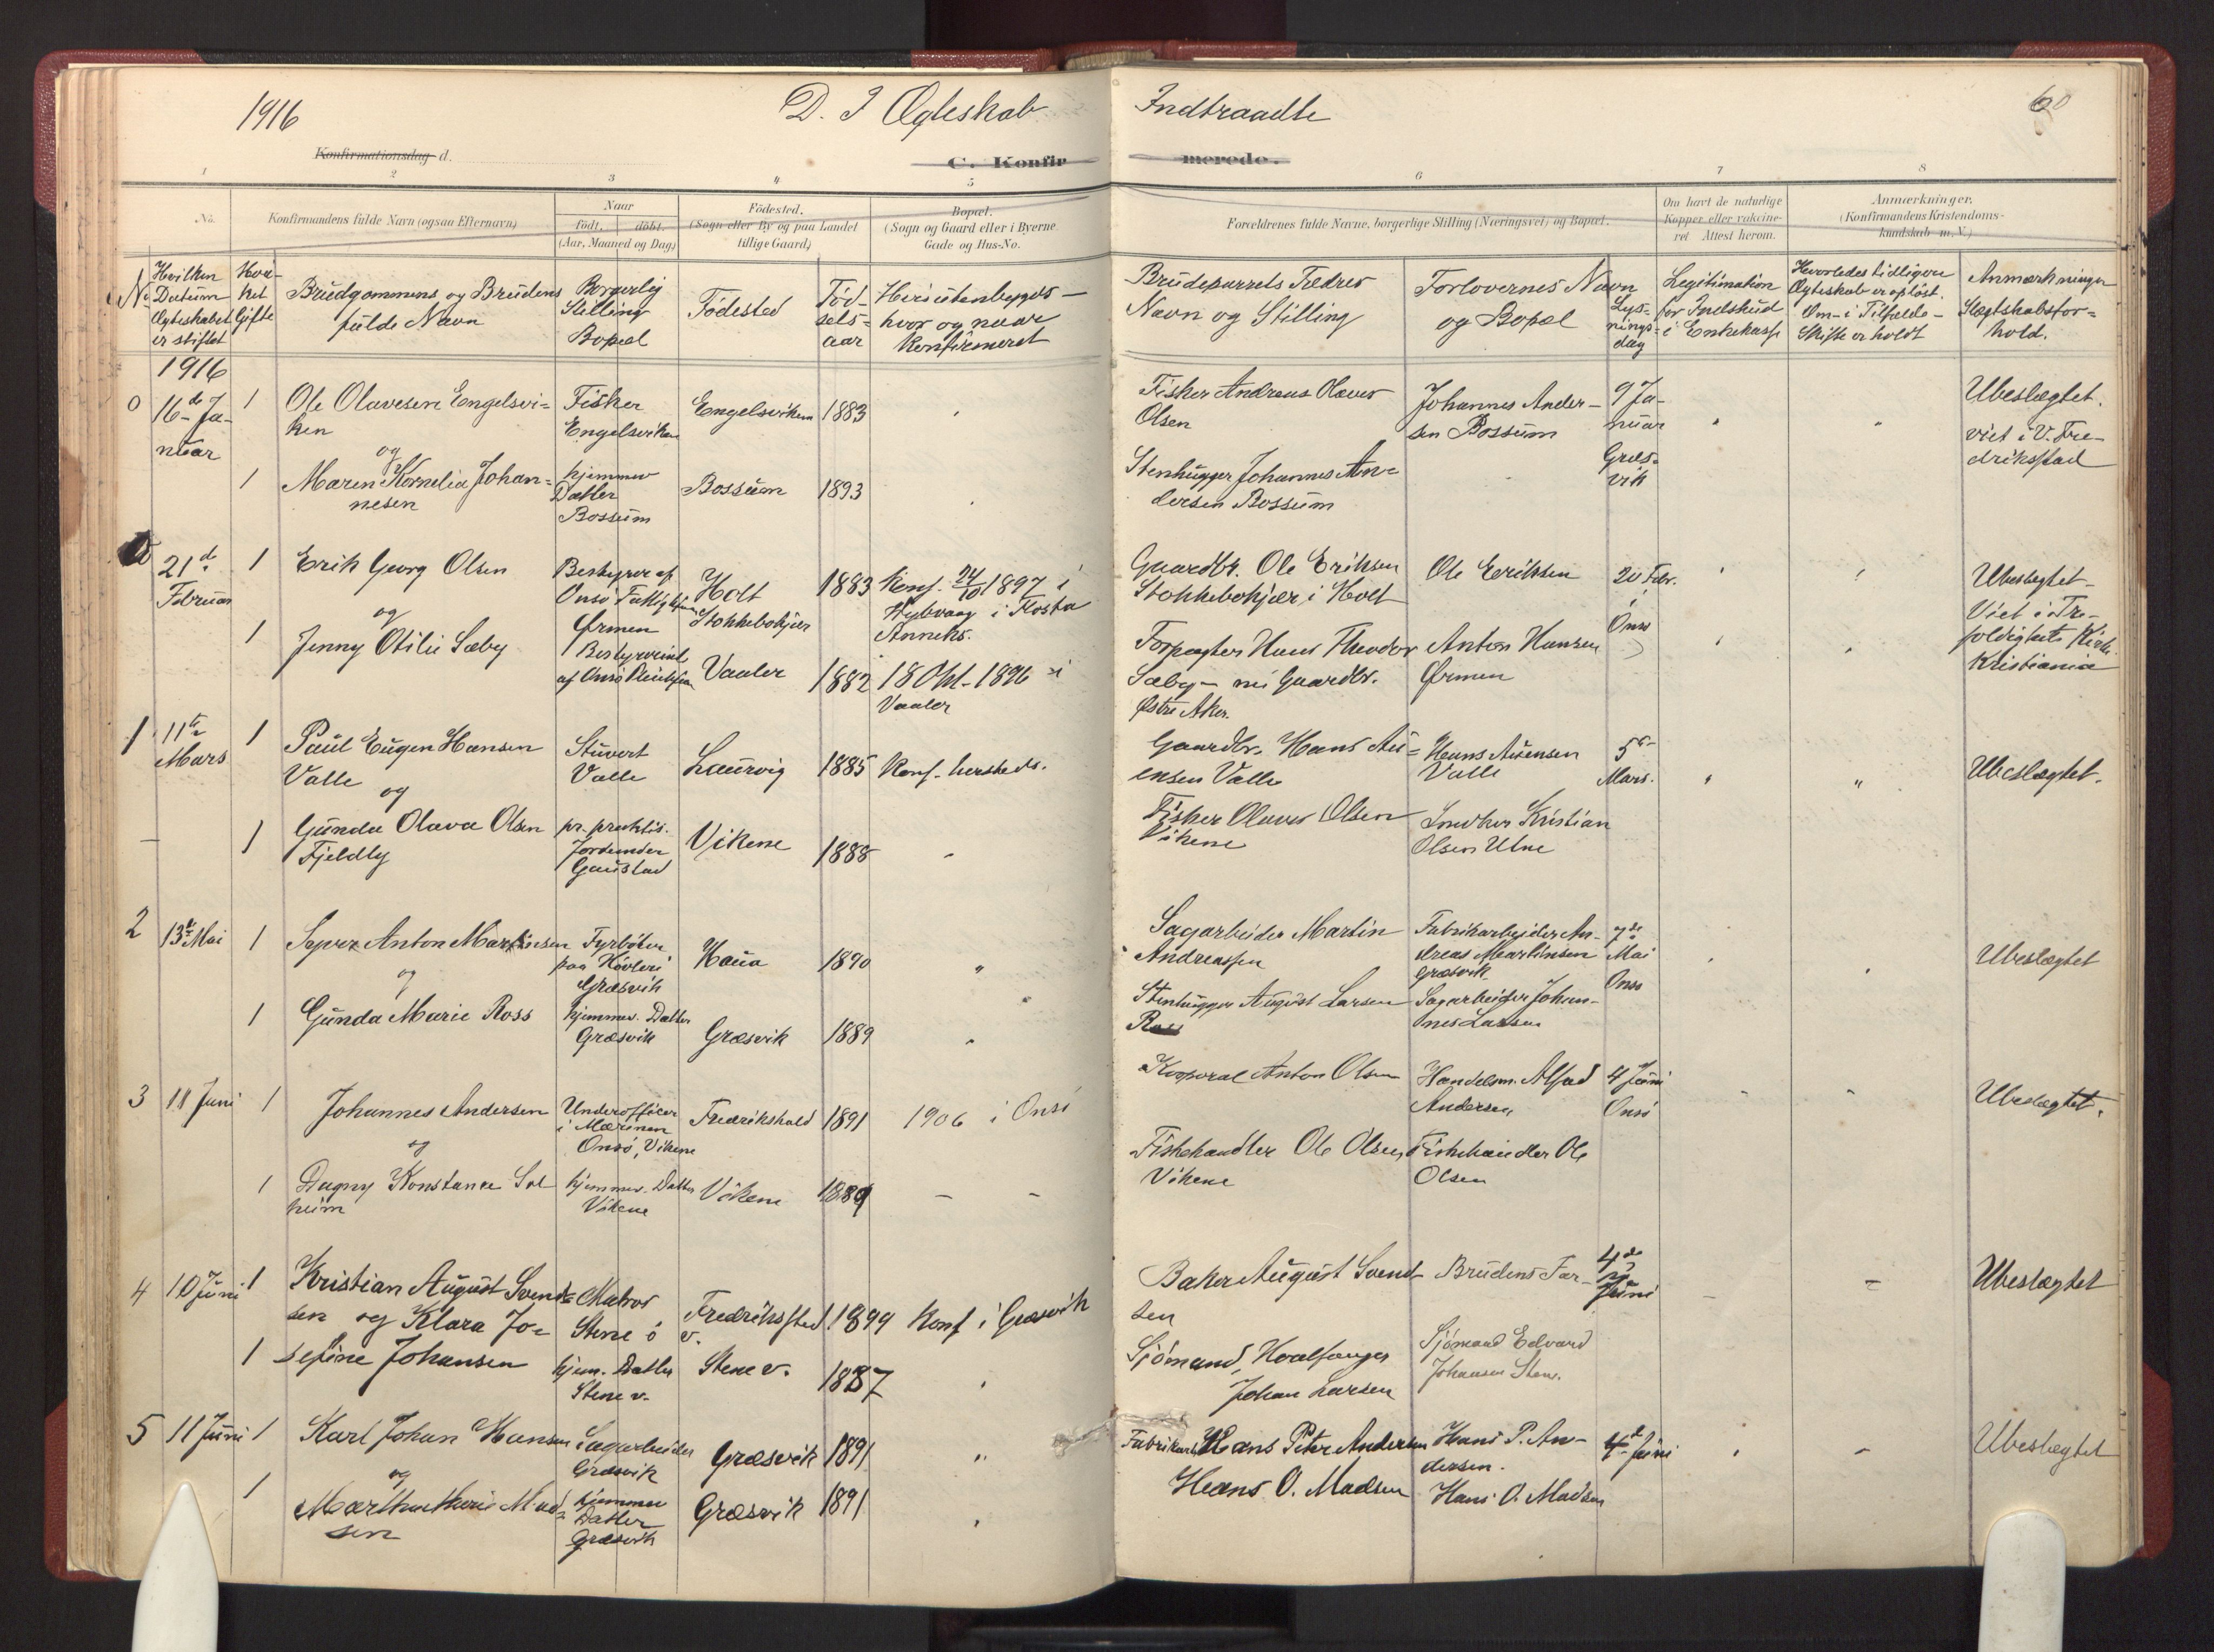 1916
D. I Ægteskab Indtraadte
60
Konfirmationsdag d.
C. Konfirmerede.
1 2 3 4 5 6 7 8
No.
Konfirmandens fulde Navn (ogsaa Efternavn)
Naar
født, døbt.
(Aar, Maaned og Dag)
Fødested.
(Sogn eller By og paa Landet
tillige Gaard)
Bopæl.
(Sogn og Gaard eller i Byerne
Gade og Hus-No.
Forældrenes fulde Navne, borgerlige Stilling (Næringsvei) og Bopæl.
Om havt de naturlige
Kopper eller vaccine-
ret Attest herom.
Anmærkninger,
(Konfirmandens Kristendoms-
kundskab m.V.)
No
Hvilken
Datum
Ægteskabet
er stiftet
Hvor-
ket
Gifte
Brudgommens og Brudens
fulde Navn
Borgerlig
Stilling
Bopæl
Fødested
Fød-
sels-
aar
Hvis utenbygds-
hvor og naar
Konfirmeret
Brudeparrets Fædres
Navn og Stilling
Forlovernes Navn
og Bopæl
Lys-
nings-
dag
Legitimation
for Indskud
i Enkekasse
Hvorledes tidligere
Ægteskab er opløst.
Om i Tilfælde
Skifte er holdt
Anmærkninger
Slegtskabsfor-
hold.
1916
0
16de Ja-
nuar
1
Ole Olavesen Engelsvi-
ken
og
Fisker
Engelsviken
Engelsviken
1883
Fisker Andreas Olaves
Olsen
Johannes Ander-
sen Bossum
9 Ja-
nuar
Græs-
vik
Ubeslægtet.
viet i V. Fre-
drikstad
1
Maren Kornelia Johan-
nesen
hjemmev
Datter
Bossum
Bossum
1893
Stenhugger Johannes An-
dersen Bossum
21de
Februar
1
Erik Georg Olsen
og
Bestyrer af
Onsø
Ørmen
Holt
Stokkebokjær
1883
Konf. 24/10 1897 i
i Flosta
Anneks.
Gaardbr. Ole Eriksen
Stokkebokjær i Holt
Ole Eriksen
20 Febr.
i
Onsø
Ubeslegtet
Viet i Tre-
foldigheds Kirke
Kristiania
1
Jenny Otilie Sæby
Bestyrerinde
af Onsø
Vaaler
1882
18 Okt. 1896 i
Vaaler
Forpagter Hans Theodor
Sæby - nu Gaardbr.
Østre Aker.
Anton Hansen
Ørmen
1
11te
Mars
1
Paul Eugen Hansen
Valle
og
Stuvert
Valle
Laurvig
1885
Konf. hersteds.
Gaardbr. Hans
Valle
Hans
Valle
5te
Mars.
Ubeslægtet.
1
Gunda Olava Olsen
Fjeldly
pr. praktis.
Jordemder
Gaustad
Vikene
1888
Fisker Olaves Olsen
Vikene
Snedker Kristian
Olsen Utne
2
13de Mai
1
Anton Martinsen
og
Fyrbøter
paa Høvleri
Græsvik
Haua
1890
Sagarbeider Martin
Andreassen
Fabrikarbeider An-
dreas Martinsen
Græsvik
7de
Mai
Onsø
Ubeslegtet
1
Gunda Marie Ross
hjemmev. Datter
Græsvik
Græsvik
1889
Stenhugger August Larsen
Ross
Sagarbeider Johan-
nes Larsen
3
11 Juni
1
Johannes Andersen
og
Underofficer
i Marinen
Onsø, Vikene
Fredrikshald
1891
1906 i Onsø
Korporal Anton Olsen
Handelsm. Alfred
Andersen
4 Juni
Onsø
Ubeslægtet.
1
Dagny Konstanse Sol
heim
hjemmev. Datter
Vikene
Vikene
1889
Fiskehandler Ole Olsen
Vikene
Fiskehandler Ole
Olsen
4
10 Juni
1
Kristian August Svend-
sen og Klara Jo-
Matros
Stene ø
Fredriksstad
v.
1899
Konf i Græsvik
Baker August Svend-
sen
Brudens Far
4de
Juni
Ubeslægtet
1
sefine Johansen
hjem. Datter
Stene v.
Stene v.
1887
Sjømand, Hvalfanger
Johan Larsen
Sjømand Edvard
Johansen Stene.
5
11 Juni
1
Karl Johan Hansen
og
Sagarbeider
Græsvik
Græsvik
1891
Fabrikarb. Hans Peter Andersen
Hans P. An-
dersen.
4de Juni
Ubeslegtet
1
Martha Marie Mad-
sen
hjemmev
Datter
Græsvik
Græsvik
1891
Hans O. Madsen
Hans O. Madsen